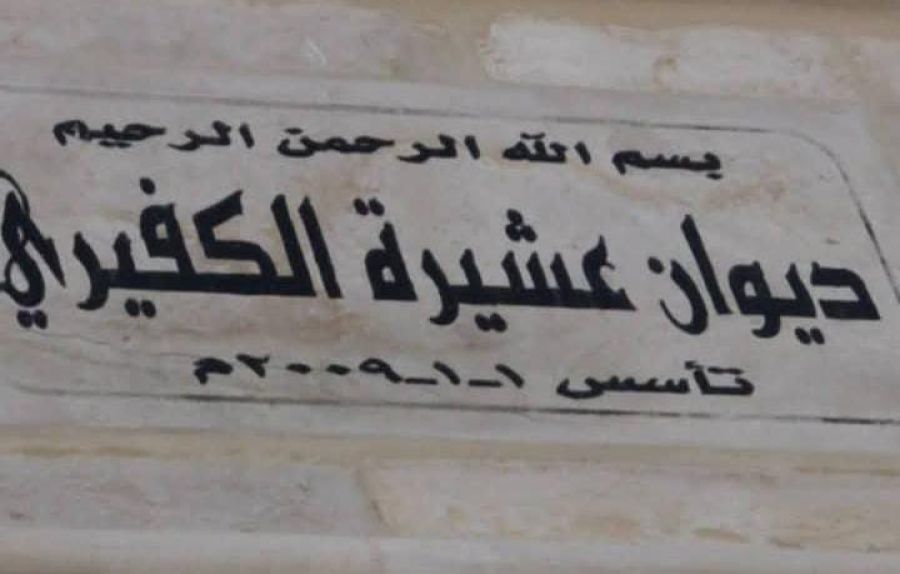 بسم الله الرحمن الرحيم
ديوان عشيرة الكفيري
تأسس ١-١-٢٠٠٩م